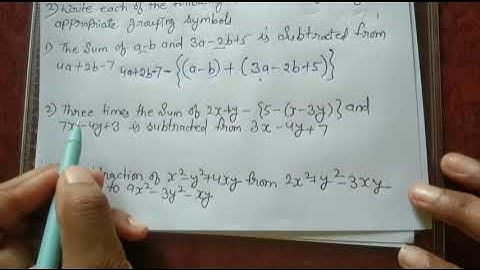 2) Write each of the following
appropriate grouping symbols
1) The Sum of a-b and 3a-2b+5 is subtracted from
4a+2b-7 4a+2b-7-{(a-b)+(3a-2b+5)}
2) Three times the Sum of 2x+y-{5-(x-3y)} and
7x-4y+3 is subtracted from 3x-4y+7
of x²-y²+4xy from 2x²+y²-3xy
to 9x²-3y²-xy